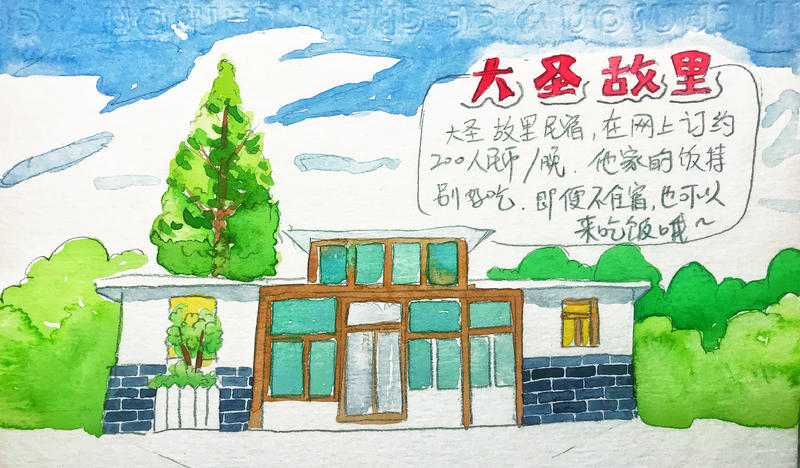 大圣故里
大圣故里民宿,在网上订约
200人民币/晚.他家的饭特
别好吃.即便不住宿,也可以
来吃饭哦~